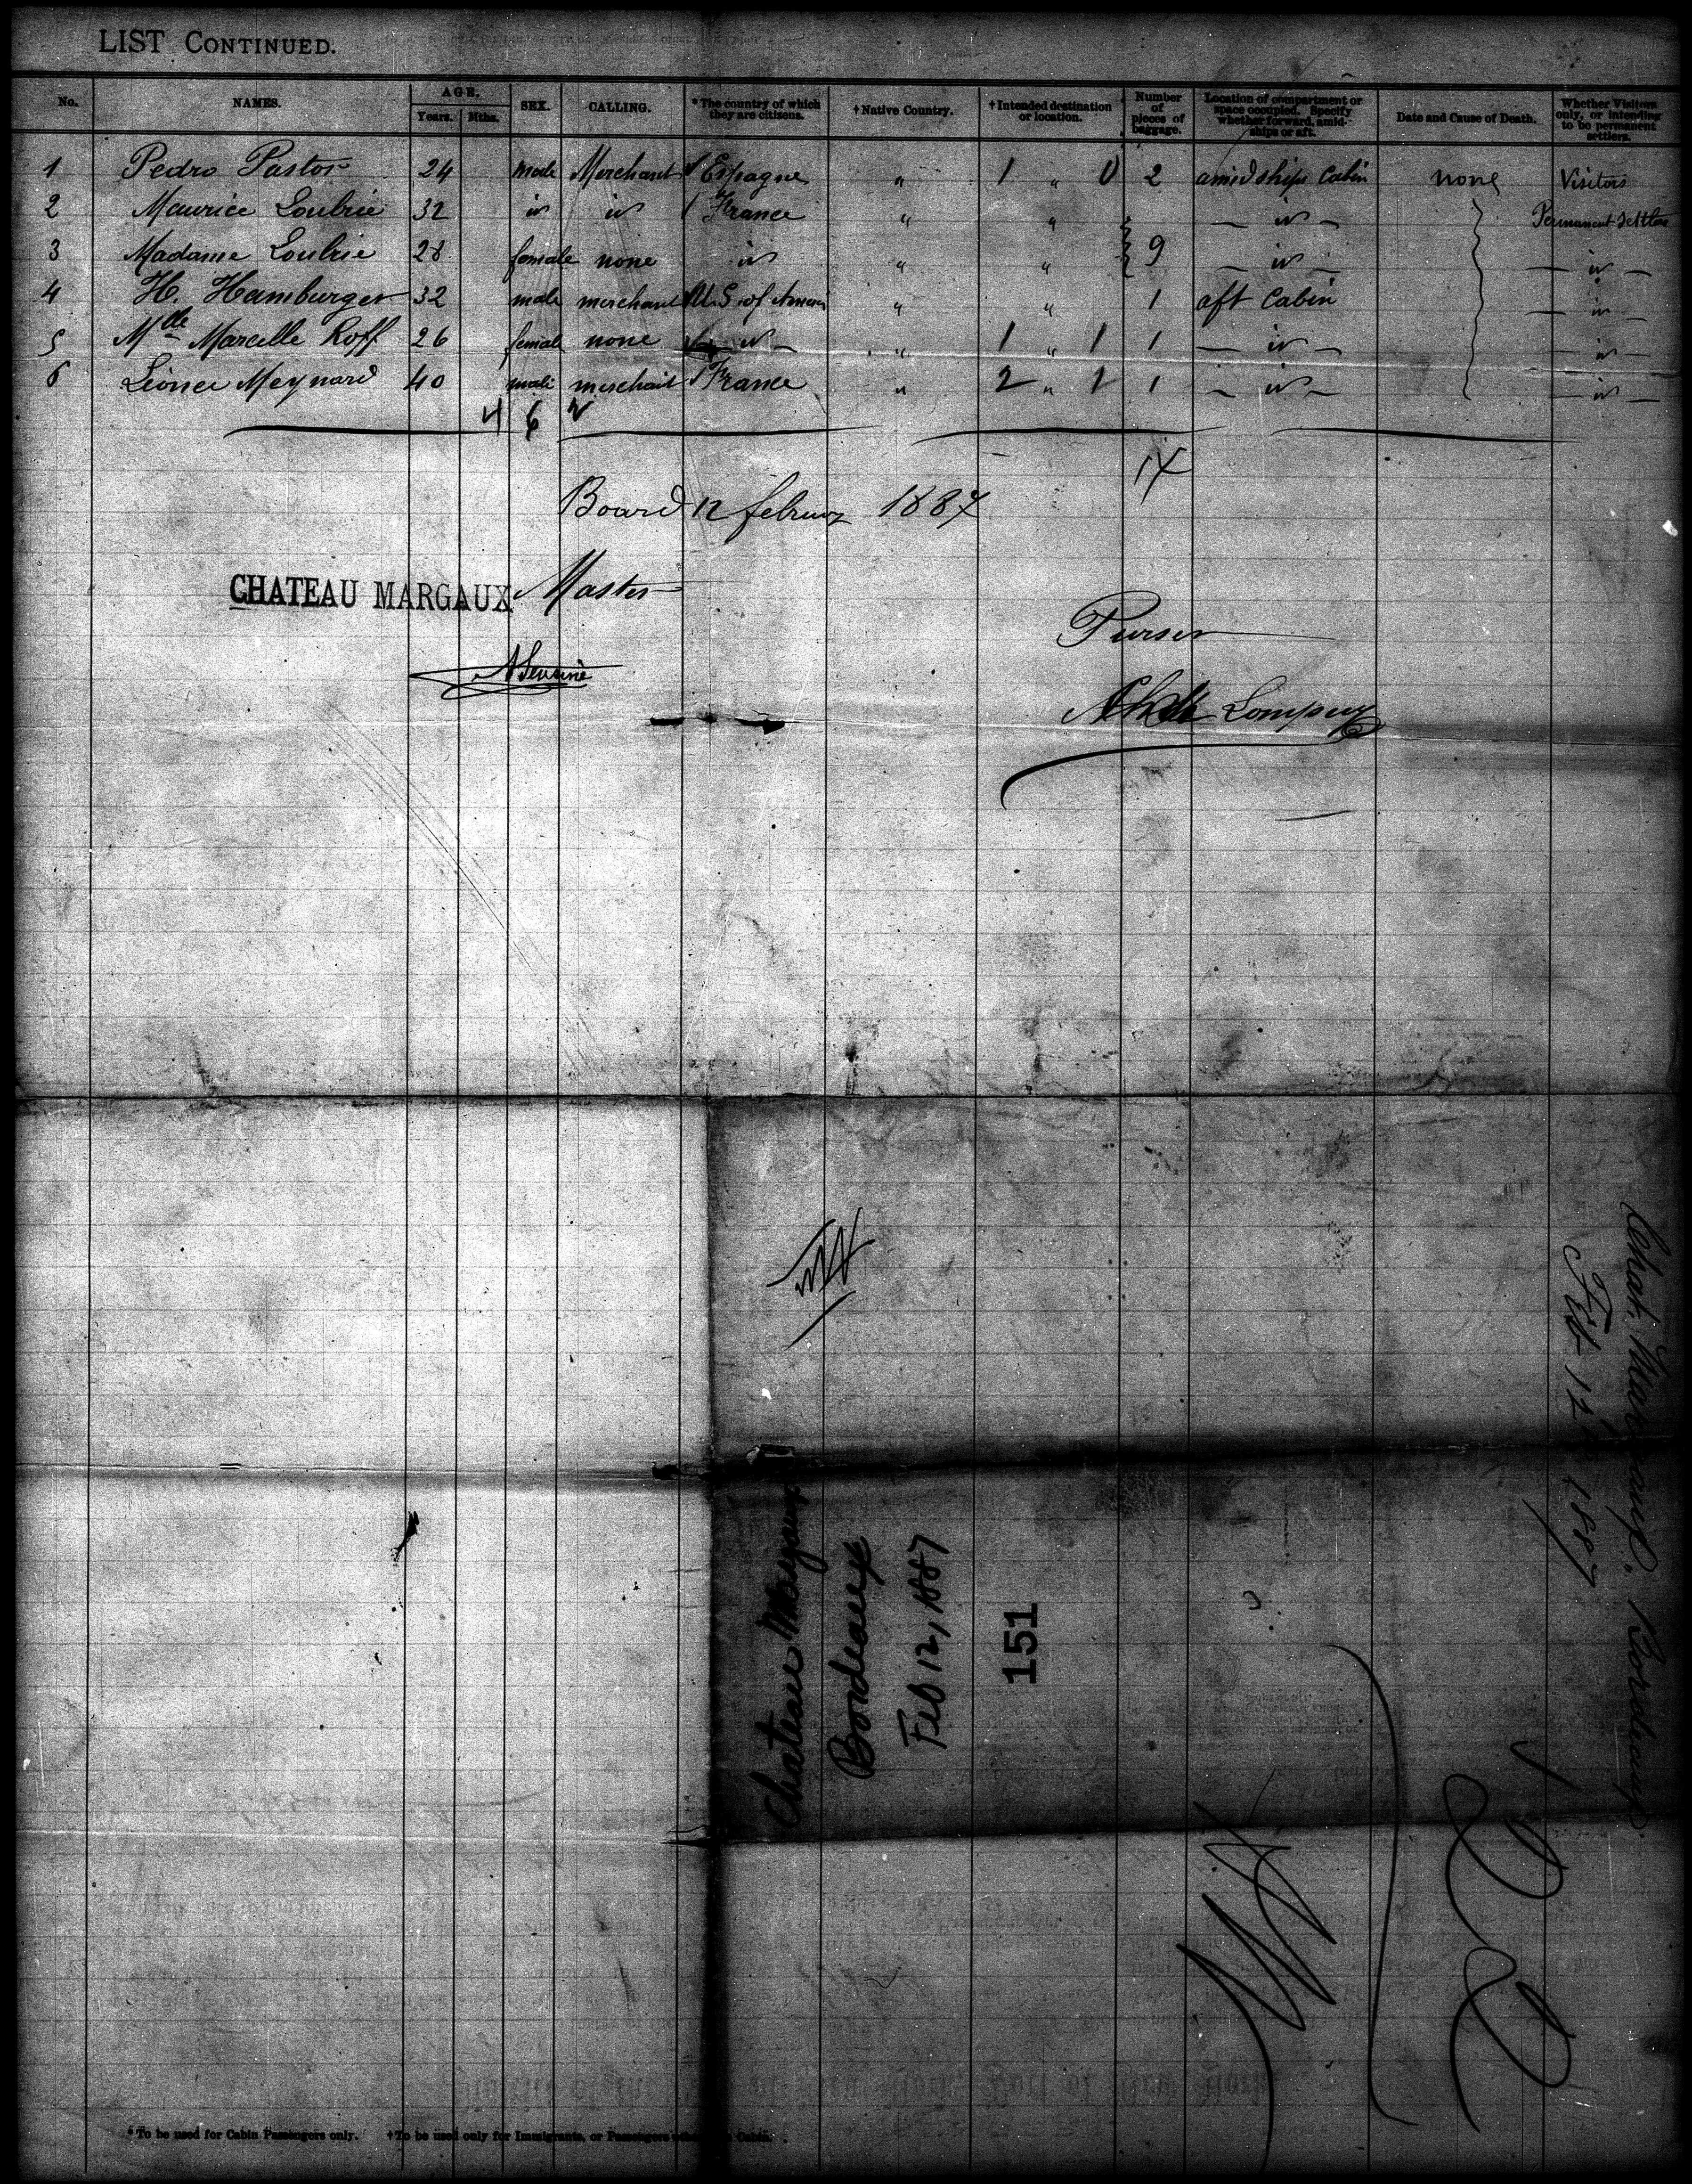 LIST CONTINUED.
No. NAMES. AGE. Years. Mths. SEX. CALLING. * The country of which they are citizens. † Native Country. † Intended destination or location. Number of pieces of baggage. Location of compartment or space occupied. Specify whether forward, amidships or aft. Date and Cause of Death. Whether Visitors only, or intending to be permanent settlers.
1 Pedro Pastor 24 male Merchant Espagne " 1 " 0 2 amidships Cabin none Visitors
2 Maurice Loubrie 32 id id France " " — id — Permanent Settler
3 Madame Loubrie 28 female none id " " 9 — id — — id —
4 H. Hamburger 32 male merchant U.S. of " " 1 aft Cabin — id —
5 Mlle Marcelle Roff 26 female none — id — " 1 " 1 1 — id — — id —
6 Meynard 40 male merchant France " 2 " 1 1 — id — — id —
4 6 2
14
Board 12 1887
CHATEAU MARGAUX Master
Purser
Chateau Margaux
Bordeaux
Feb 12, 1887
151
Chat. Margaux. Bordeaux
Feb 12 1887
* To be used for Cabin Passengers only. † To be used only for Immigrants, or Passengers Cabin.